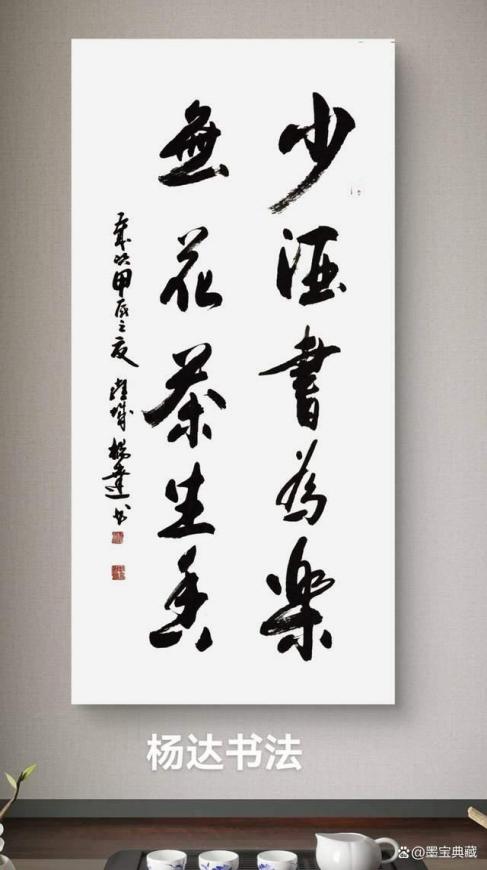 少酒書為樂
無花茶生香
歲次甲辰之夏 楊達书
杨达书法
@墨宝典藏